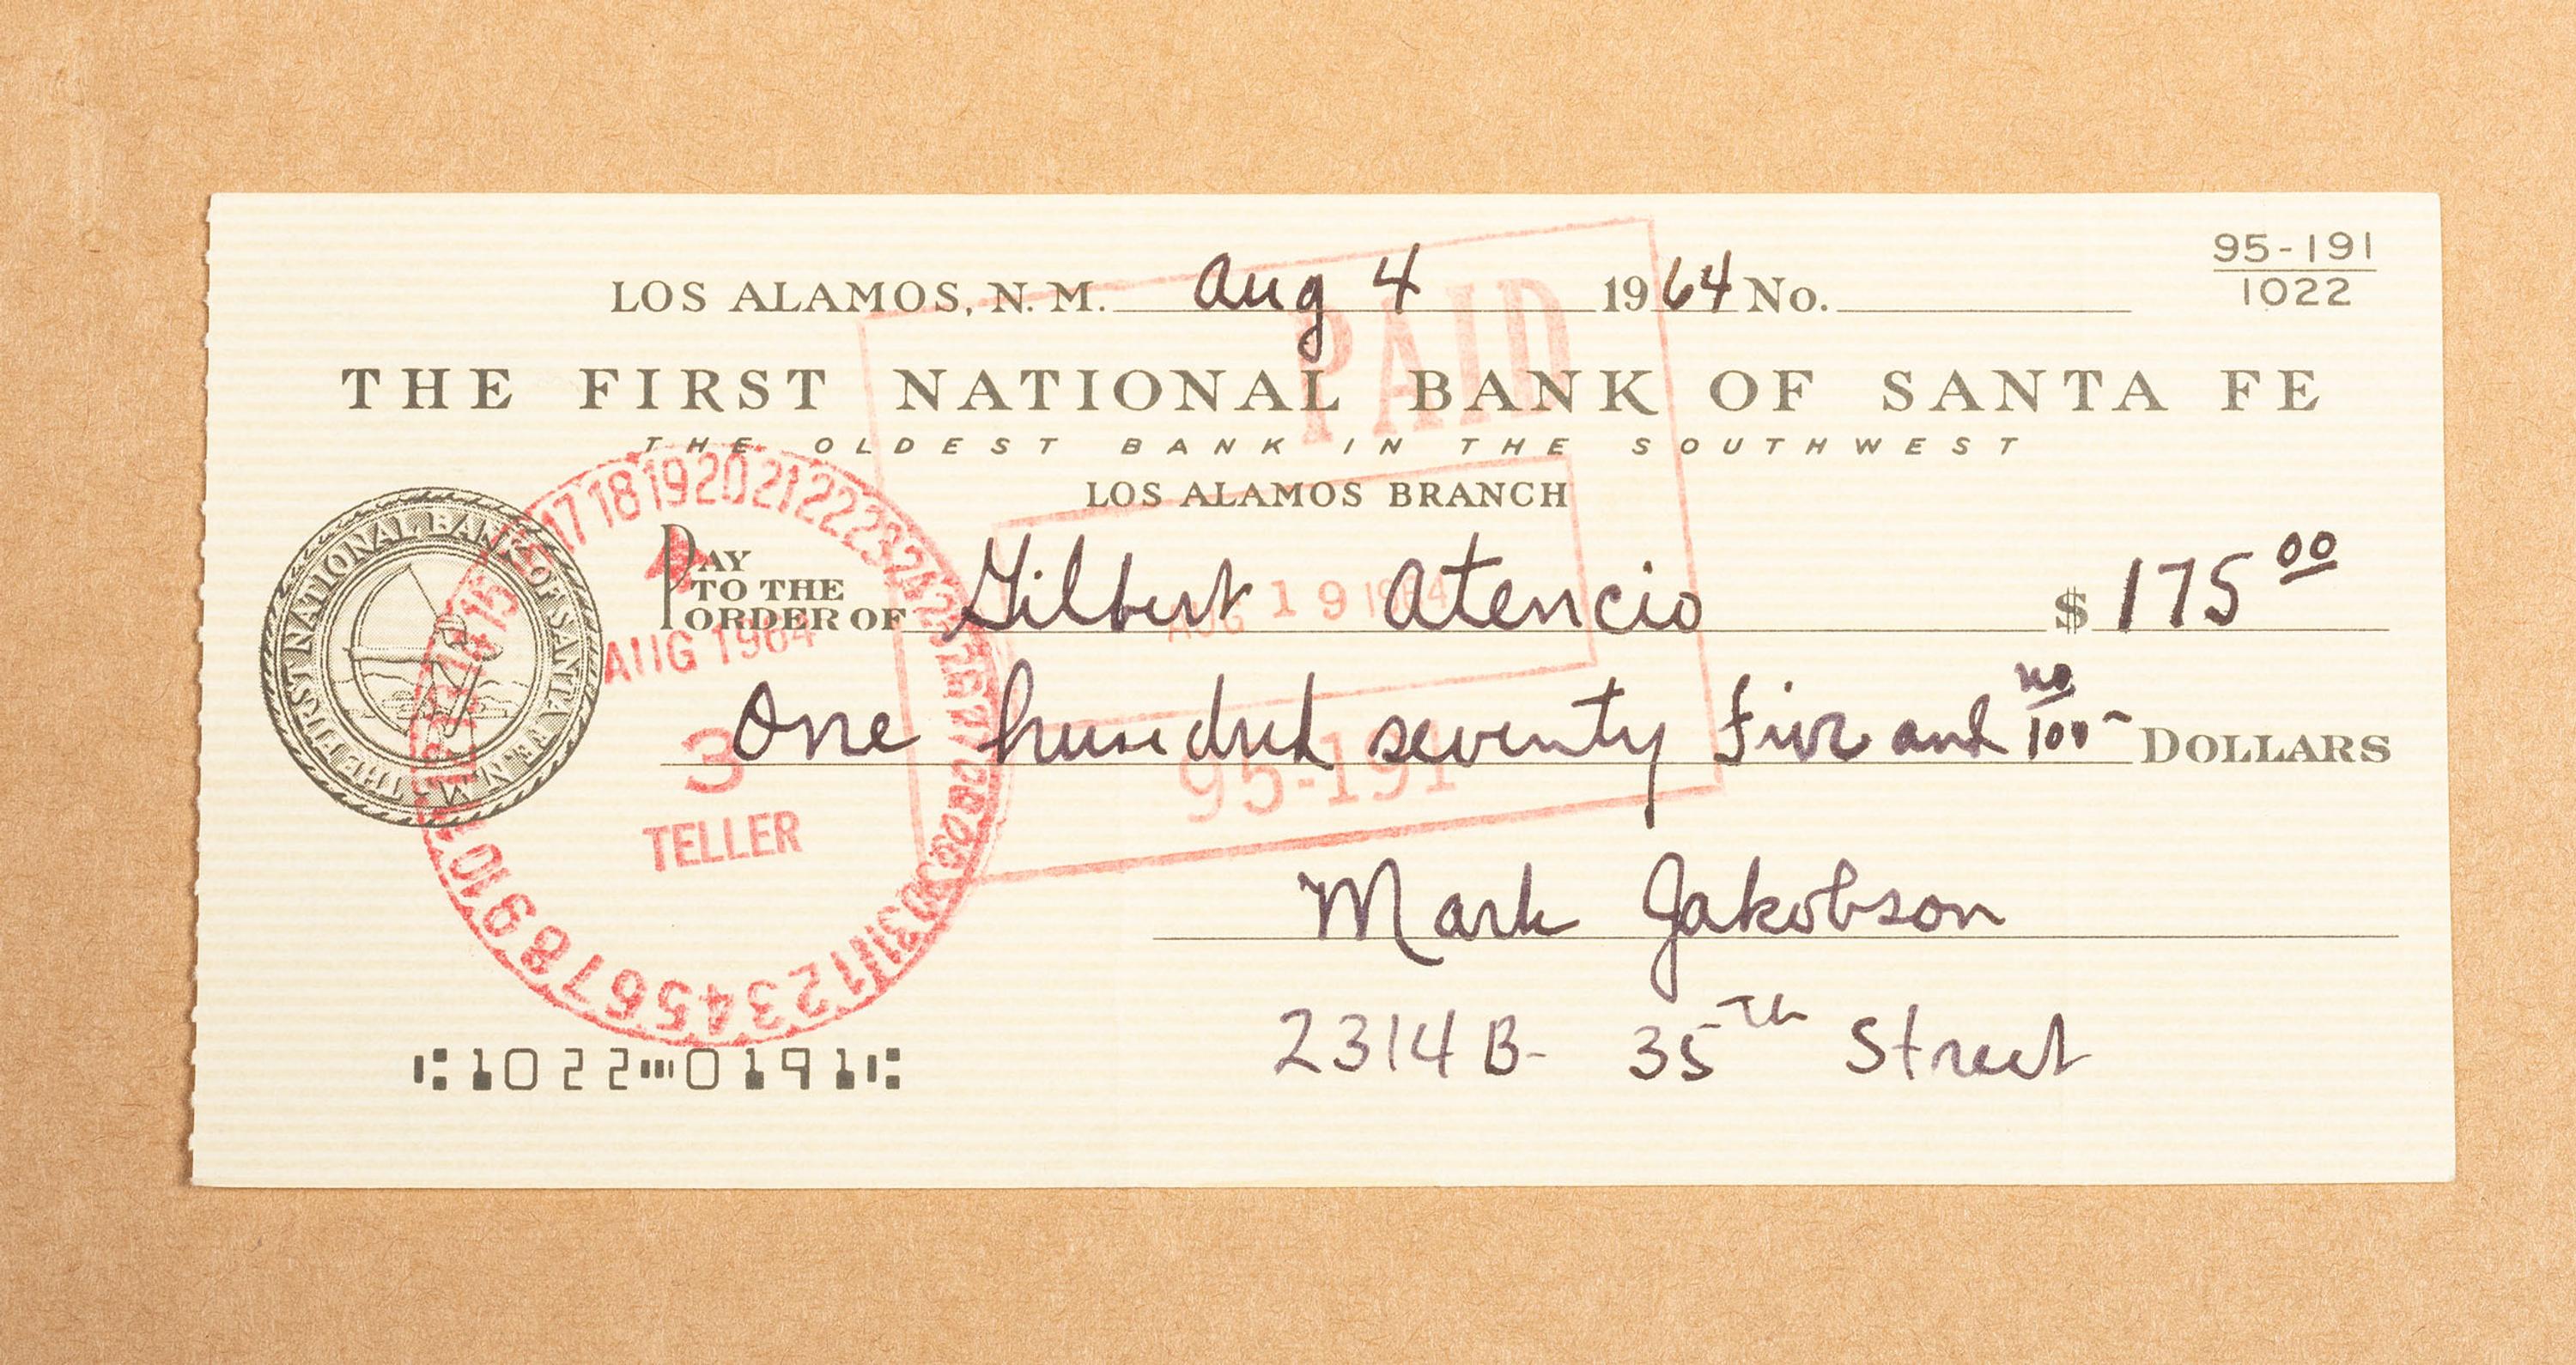 95-191
1022
LOS ALAMOS, N. M. Aug 4 1964 No.
THE FIRST NATIONAL BANK OF SANTA FE
THE OLDEST BANK IN THE SOUTHWEST
LOS ALAMOS BRANCH
PAID
AUG 19 1964
95-191
THE FIRST NATIONAL BANK OF SANTA FE, N.M.
PAY TO THE ORDER OF Gilbert Atencio $175 00
One hundred seventy five and no/100 - DOLLARS
17 18 19 20 21 22 23 24 25 26 27 28
AUG 1964
3
TELLER
30 31 1 2 3 4 5 6 7 8 9 10
Mark Jakobson
2314 B- 35th Street
⑆1022⑉0191⑆